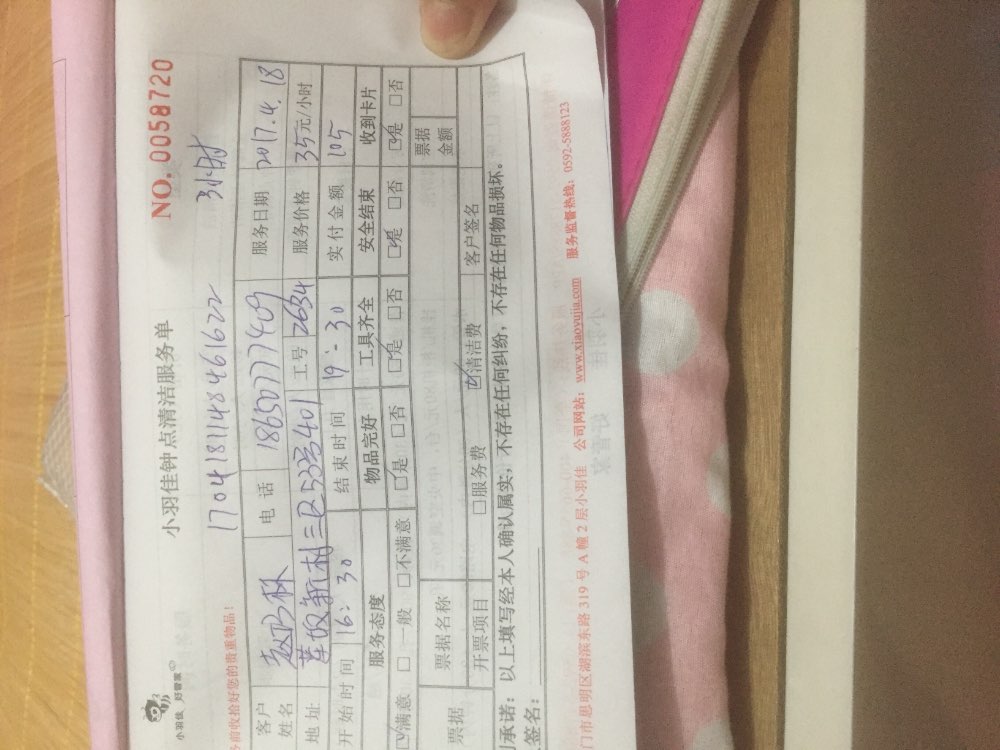 小羽佳 好管家
小羽佳钟点清洁服务单
NO. 0058720
务前收拾好您的贵重物品！
1704181148461622 3小时
客户姓名 电话 18650777409 服务日期 2017.4.18
地址 莲坂新村三区53号401 工号 2634 服务价格 35元/小时
开始时间 16:30 结束时间 19:30 实付金额 105
服务态度 物品完好 工具齐全 安全结束 收到卡片
☑满意 □一般 □不满意 ☑是 □否 ☑是 □否 ☑是 □否 ☑是 □否
票据 票据名称 票据金额
开票项目 □服务费 ☑清洁费 客户签名
承诺：以上填写经本人确认属实，不存在任何纠纷，不存在任何物品损坏。
签名：
门市思明区湖滨东路 319 号 A 幢 2 层小羽佳 公司网站：www.xiaoyujia.com 服务监督热线：0592-5888123